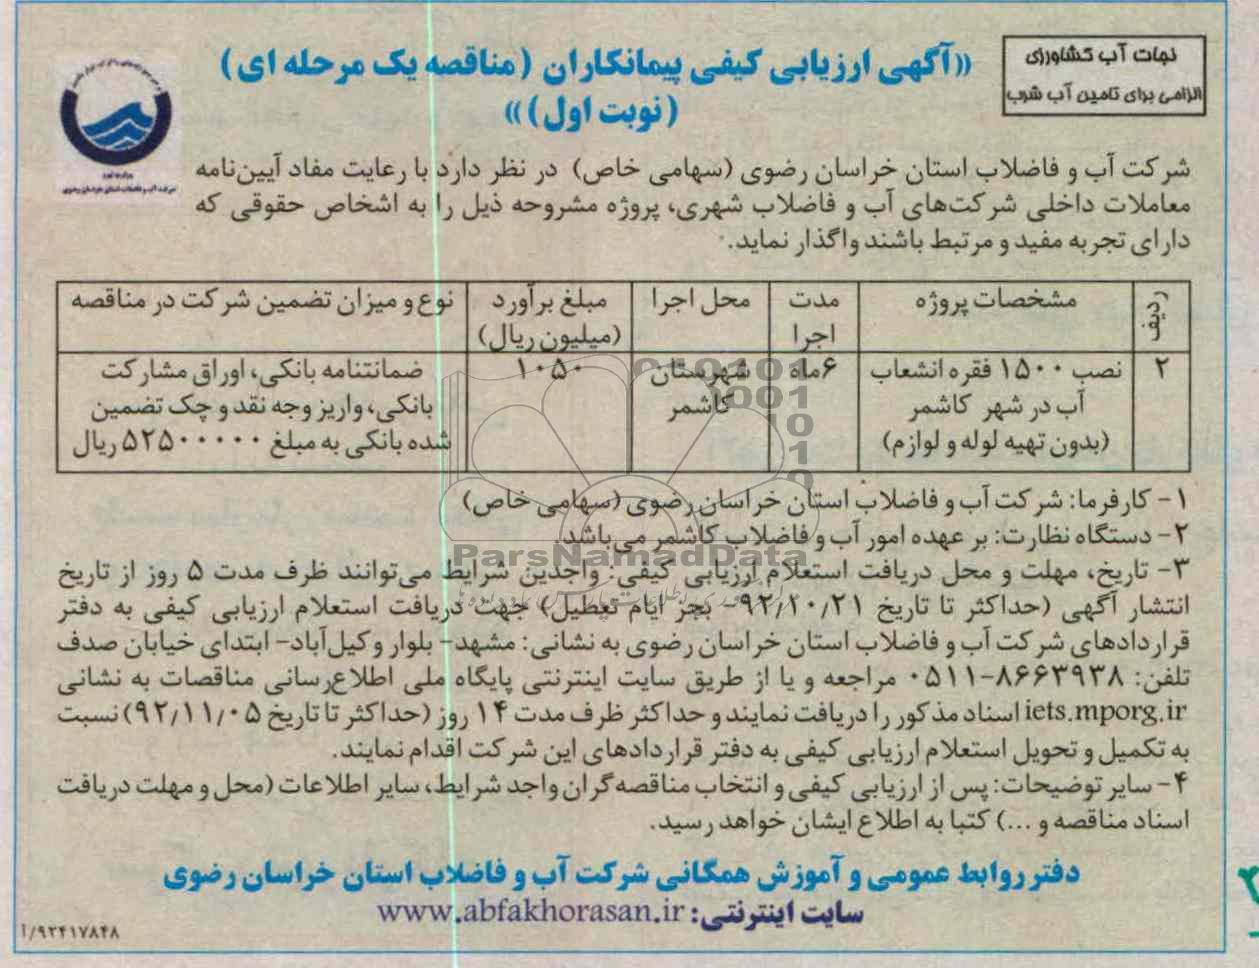 نجات آب کشاورزی
الزامی برای تامین آب شرب
«آگهی ارزیابی کیفی پیمانکاران (مناقصه یک مرحله ای)
(نوبت اول)»
شرکت آب و فاضلاب استان خراسان رضوی (سهامی خاص) در نظر دارد با رعایت مفاد آیین‌نامه
معاملات داخلی شرکت‌های آب و فاضلاب شهری، پروژه مشروحه ذیل را به اشخاص حقوقی که
دارای تجربه مفید و مرتبط باشند واگذار نماید.
ردیف مشخصات پروژه مدت محل اجرا مبلغ برآورد نوع و میزان تضمین شرکت در مناقصه
اجرا (میلیون ریال)
۲ نصب ۱۵۰۰ فقره انشعاب ۶ماه شهرستان ۱۰۵۰ ضمانتنامه بانکی، اوراق مشارکت
آب در شهر کاشمر کاشمر بانکی، واریز وجه نقد و چک تضمین
(بدون تهیه لوله و لوازم) شده بانکی به مبلغ ۵۲۵۰۰۰۰۰ ریال
۱- کارفرما: شرکت آب و فاضلاب استان خراسان رضوی (سهامی خاص)
۲- دستگاه نظارت: بر عهده امور آب و فاضلاب کاشمر می‌باشد.
ParsNamadData
۳- تاریخ، مهلت و محل دریافت استعلام ارزیابی کیفی: واجدین شرایط می‌توانند ظرف مدت ۵ روز از تاریخ
انتشار آگهی (حداکثر تا تاریخ ۹۲/۱۰/۲۱- بجز ایام تعطیل) جهت دریافت استعلام ارزیابی کیفی به دفتر
قراردادهای شرکت آب و فاضلاب استان خراسان رضوی به نشانی: مشهد- بلوار وکیل‌آباد- ابتدای خیابان صدف
تلفن: ۸۶۶۳۹۳۸-۰۵۱۱ مراجعه و یا از طریق سایت اینترنتی پایگاه ملی اطلاع‌رسانی مناقصات به نشانی
iets.mporg.ir اسناد مذکور را دریافت نمایند و حداکثر ظرف مدت ۱۴ روز (حداکثر تا تاریخ ۹۲/۱۱/۰۵) نسبت
به تکمیل و تحویل استعلام ارزیابی کیفی به دفتر قراردادهای این شرکت اقدام نمایند.
۴- سایر توضیحات: پس از ارزیابی کیفی و انتخاب مناقصه‌گران واجد شرایط، سایر اطلاعات (محل و مهلت دریافت
اسناد مناقصه و ...) کتبا به اطلاع ایشان خواهد رسید.
دفتر روابط عمومی و آموزش همگانی شرکت آب و فاضلاب استان خراسان رضوی
سایت اینترنتی: www.abfakhorasan.ir
۹۲۴۱۷۸۴۸/آ